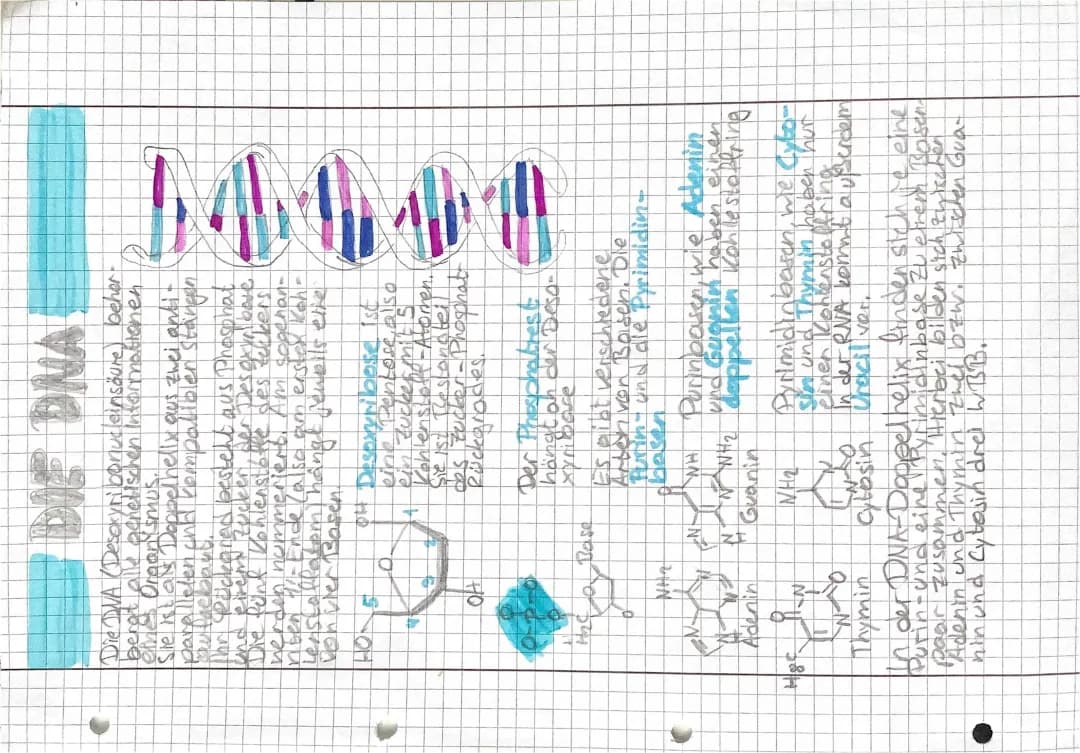 DIE DNA
Die DNA (Desoxyribonucleinsäure) beher-
bergt alle genetischen Informationen
eines Organismus.
Sie ist als Doppelhelix aus zwei anti-
parallelen und kompatiblen Strängen
aufgebaut.
Ihr Rückgrad besteht aus Phosphat
und einem Zucker der Desoxiribose
Die fünf Kohlenstoffe des Zuckers
werden nummeriert. Am sogenan-
nten 1'-Ende (also am ersten Koh-
lenstoffatom) hängt jeweils eine
von vier Basen
HO
5
OH
O
4
3
2
1
OH
Desoxyribose ist
eine Pentose, also
ein Zucker mit 5
Kohlenstoff-Atomen.
Sie ist Bestandteil
des Zucker-Phosphat
Rückgrades.
O
O-P-O
O
H₂C
O
Base
O
Der Phosphatrest
hängt an der Deso-
xyribose
Es gibt verschiedene
Arten von Basen. Die
Purin- und die Pyrimidin-
basen
NH₂
N
N
N
N
H
Adenin
O
NH
N
N
N
NH₂
H
Guanin
Purinbasen, wie Adenin
und Guanin haben einen
doppelten Kohlestoffring
H₃C
O
N
N
O
Thymin
NH₂
N
N
O
Cytosin
Pyrimidinbasen, wie Cyto-
sin und Thymin haben nur
einen Kohlenstoffring.
In der RNA kommt außerdem
Uracil vor.
In der DNA-Doppelhelix finden sich je eine
Purin- und eine Pyrimidinbase zu einem Basen-
paar zusammen. Hierbei bilden sich zwischen
Adenin und Thymin zwei bzw. zwischen Gua-
nin und Cytosin drei WBB.